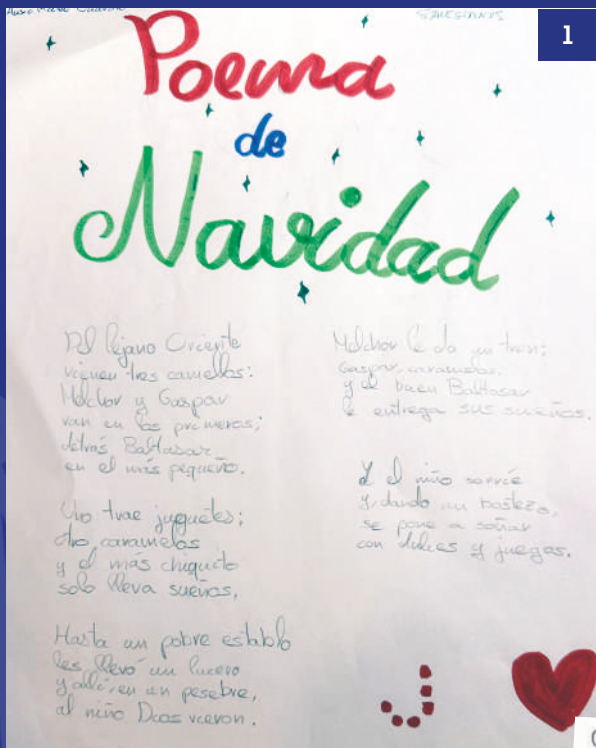 SALESIANOS
1
Poema
de
Navidad
Del lejano Oriente
vienen tres camellos:
Melchor y Gaspar
van en los primeros;
detrás Baltasar
en el más pequeño.
Uno trae juguetes;
otro, caramelos
y el más chiquito
solo lleva sueños,
Hasta un pobre establo
les llevó un lucero
y allí, en un pesebre,
al niño Dios vieron.
Melchor le da un tren;
Gaspar, caramelos.
y el buen Baltasar
le entrega sus sueños.
Y el niño sonríe
y, dando un bostezo,
se pone a soñar
con dulces y juegos.
J